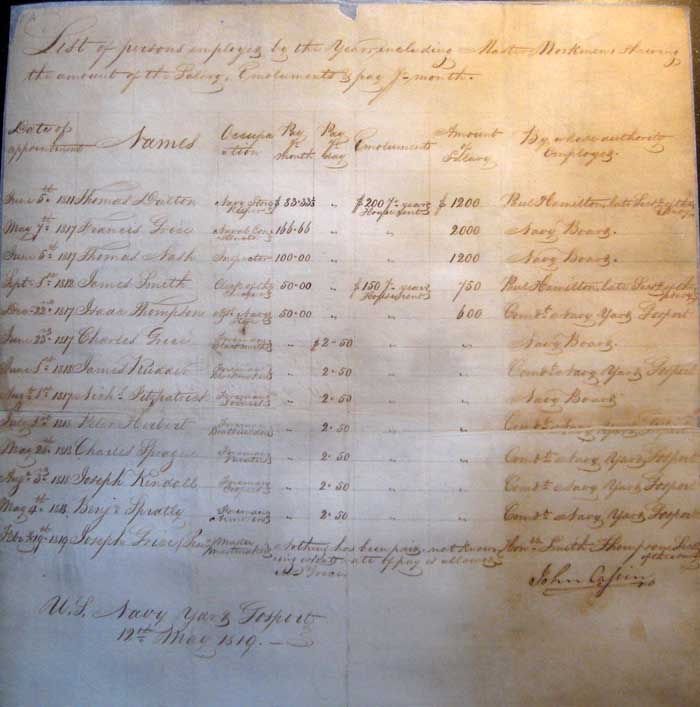 List of persons employed by the Year, including Master Workmen; Shewing
the amount of the Salary, Emoluments & pay pr month.
Date of appointment Names Occupa ation Pay pr month Pay pr day Emoluments Amount of Salary By whose authority employed.
June 5th 1811 Thomas Dalton Navy Store Keeper $ 83.33⅓ " $200 pr year House rent $ 1200 Paul Hamilton, late Secty of the Navy
May 7th 1817 Francis Grice Naval Constructor 166.66 " 2000 Navy Board.
June 6th 1817 Thomas Nash Inspector 100.00 " 1200 Navy Board.
Sept. 1st 1812 James Smith Clerk of the 50.00 " $150 pr year House rent 750 Paul Hamilton, late Secty of the Navy
Dec. 22d 1817 Isaac Thompson Navy 50.00 " 600 Comdt Navy Yard Gosport
June 23d 1817 Charles Grice Foreman " $2.50 " " Navy Board.
June 1st 1818 James Foreman " 2.50 " " Comdt Navy Yard Gosport
1st 1817 Nichs Fitzpatrick Foreman Joiners " 2.50 " " Navy Board
July 1st 1818 Peter Herbert Foreman Boatbuilders " 2.50 " " Comdt Navy Yard Gosport
May 26th 1818 Charles Sprague Foreman Painters " 2.50 " " Comdt Navy Yard Gosport
Augt 3d 1818 Joseph Kindall Foreman Coopers " 2.50 " " Comdt Navy Yard Gosport
May 4th 1818 Benjn Spratly Foreman Armorers " 2.50 " " Comdt Navy Yard Gosport
Feby 19th 1819 Joseph Grice Master Mastmaker Nothing has been paid, not know Honble Smith Thompson Secty of the Navy
ing what rate of pay is allowed
John Cassin
U.S. Navy Yard Gosport
12th May 1819.